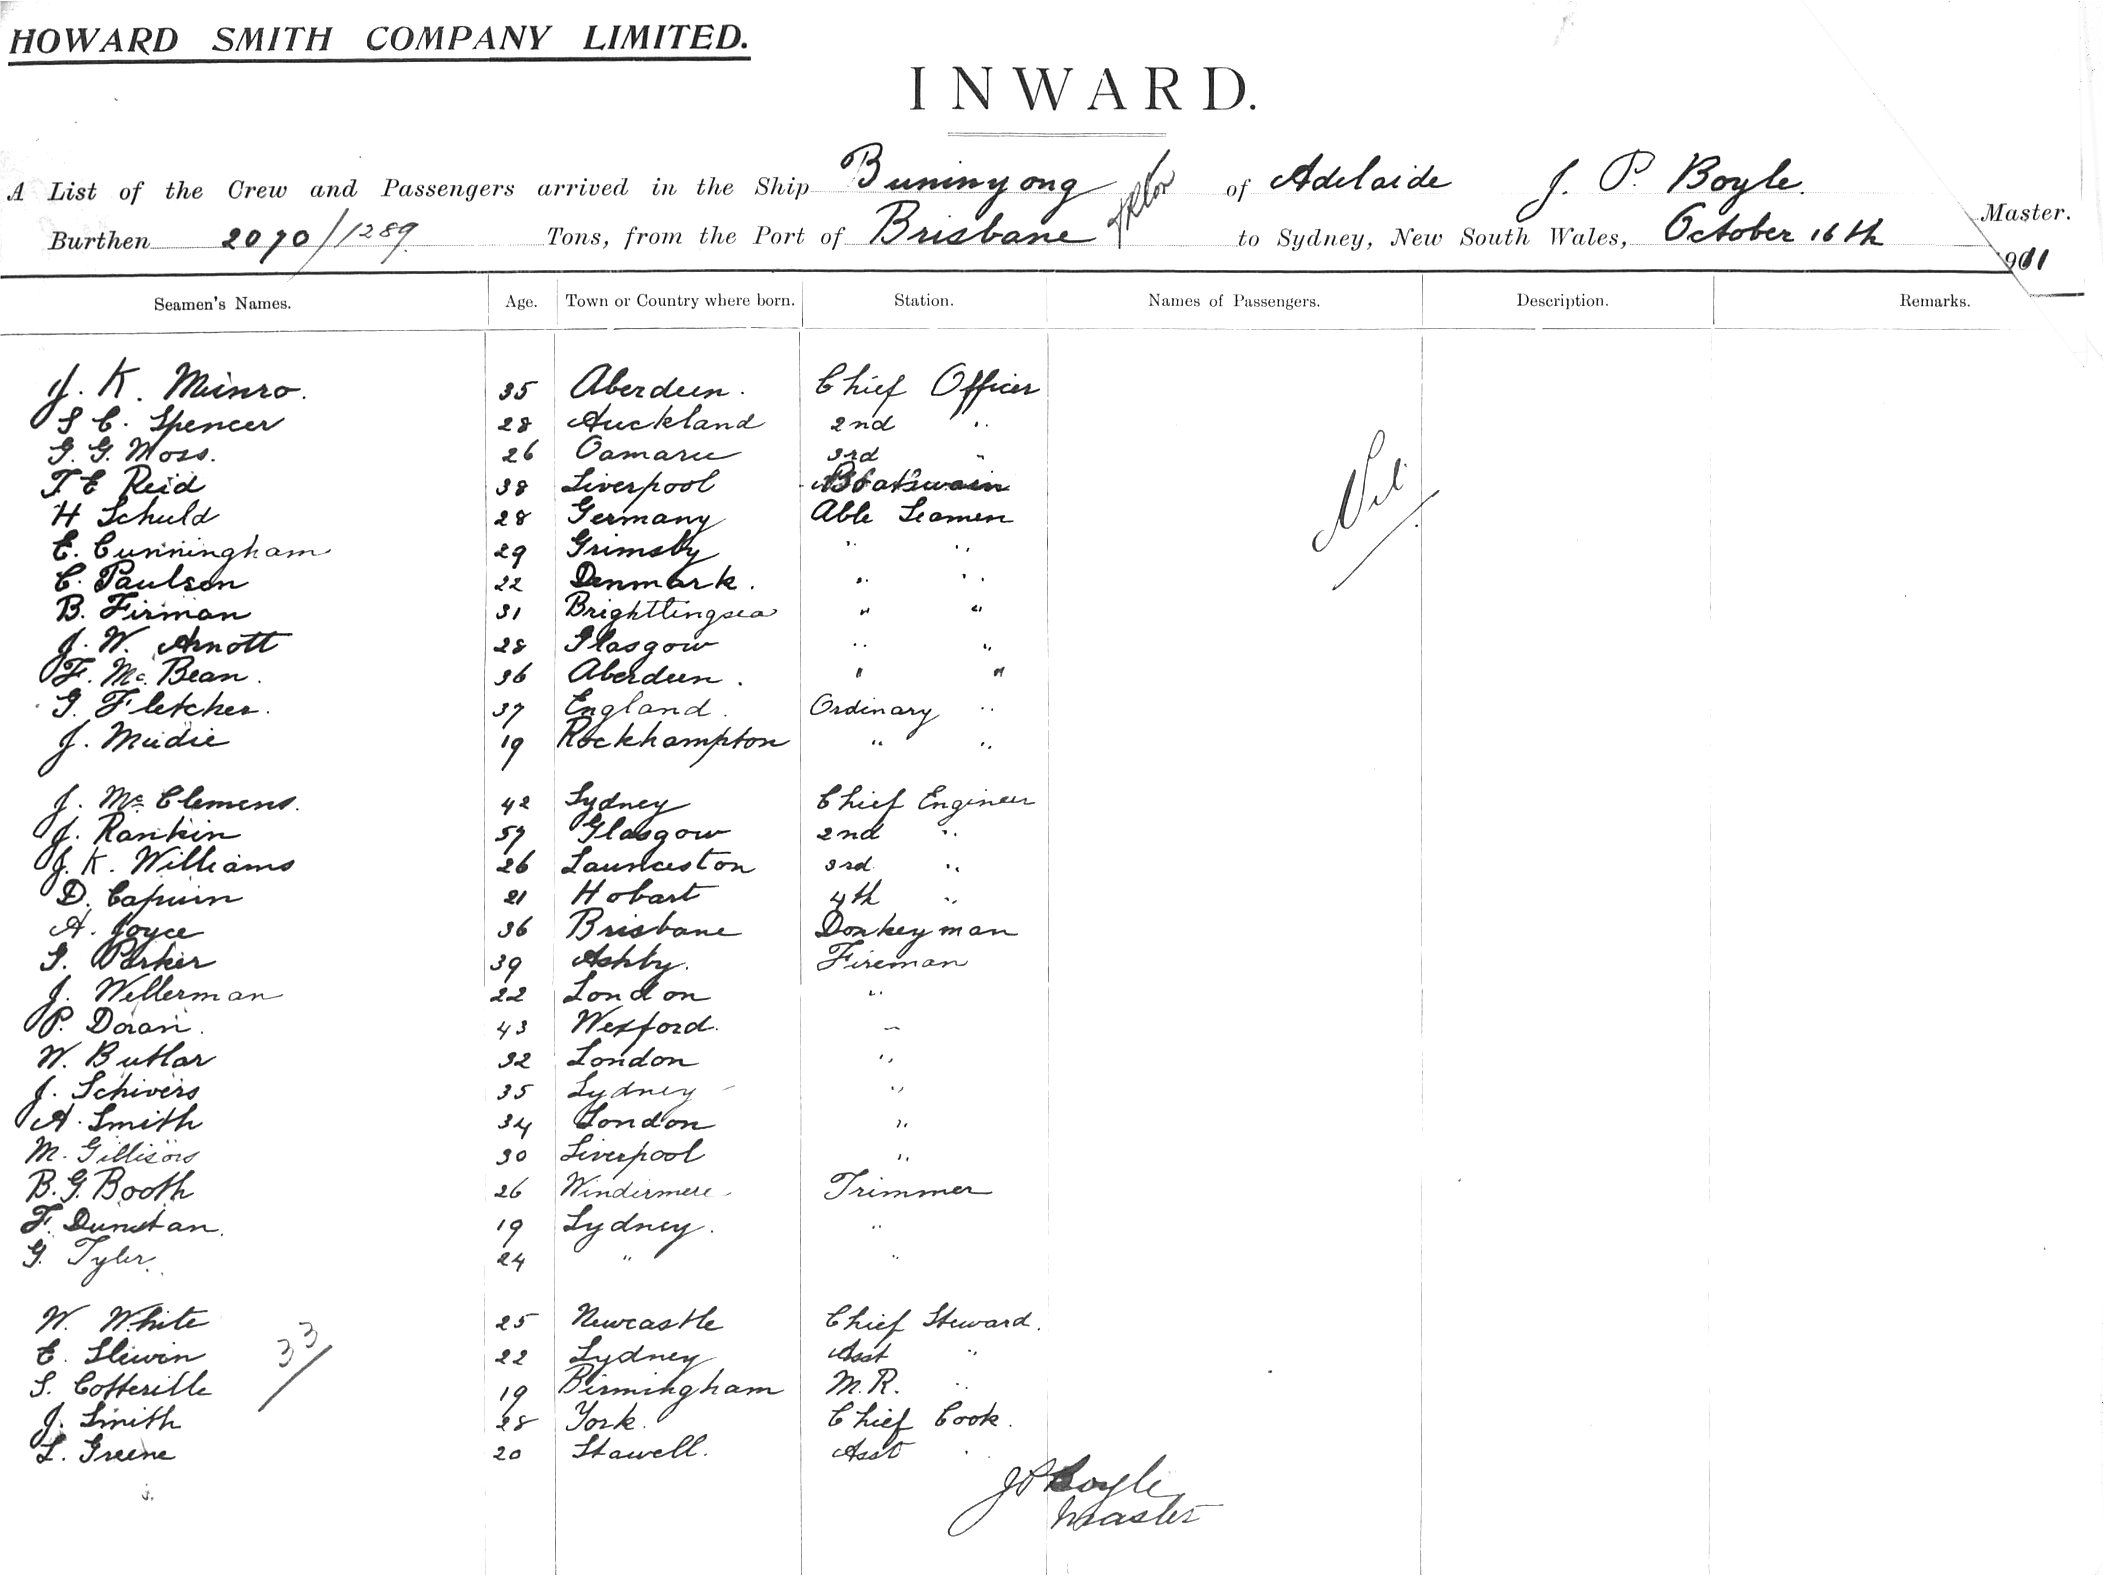 HOWARD SMITH COMPANY LIMITED.
INWARD.
A List of the Crew and Passengers arrived in the Ship Buninyong of Adelaide J. P. Boyle. Master.
Burthen 2070/1289 Tons, from the Port of Brisbane to Sydney, New South Wales, October 16th 1911
Seamen's Names. Age. Town or Country where born. Station. Names of Passengers. Description. Remarks.
J. K. Munro. 35 Aberdeen. Chief Officer
S C. Spencer 28 Auckland 2nd "
G. G. Moss. 26 Oamaru 3rd "
T E Reid 38 Liverpool Boatswain
H Schuld 28 Germany Able Seamen
Nil
E. Cunningham 29 Grimsby " "
C. Paulsen 22 Denmark. " "
B. Firman 31 Brighttingsea " "
J. W. Arnott 28 Glasgow " "
F. Mc. Bean. 36 Aberdeen. " "
G. Fletcher. 37 England. Ordinary "
J. Mudie 19 Rockhampton " "
J. Mc Clemens. 42 Sydney Chief Engineer
J. Rankin 57 Glasgow 2nd "
J. K. Williams 26 Launceston 3rd "
D. 21 Hobart 4th "
A. Joyce 36 Brisbane Donkeyman
G. Parker 39 Ashby. Fireman
J. Wellerman 22 London "
P. Doran. 43 Wexford. "
W. Butlar 32 London "
J. Schivers 35 Sydney "
A. Smith 34 London "
M. Gillisois 30 Liverpool "
B. G. Booth 26 Windermere Trimmer
F. Dunstan. 19 Sydney. "
G. Tyler. 24 " "
W. White 25 Newcastle Chief Steward.
33
E. Slewin 22 Sydney Asst "
S. Cotterille 19 Birmingham M.R. "
J. Smith 28 York. Chief Cook.
L. Greene 20 Stawell. Asst "
J P Boyle
Master